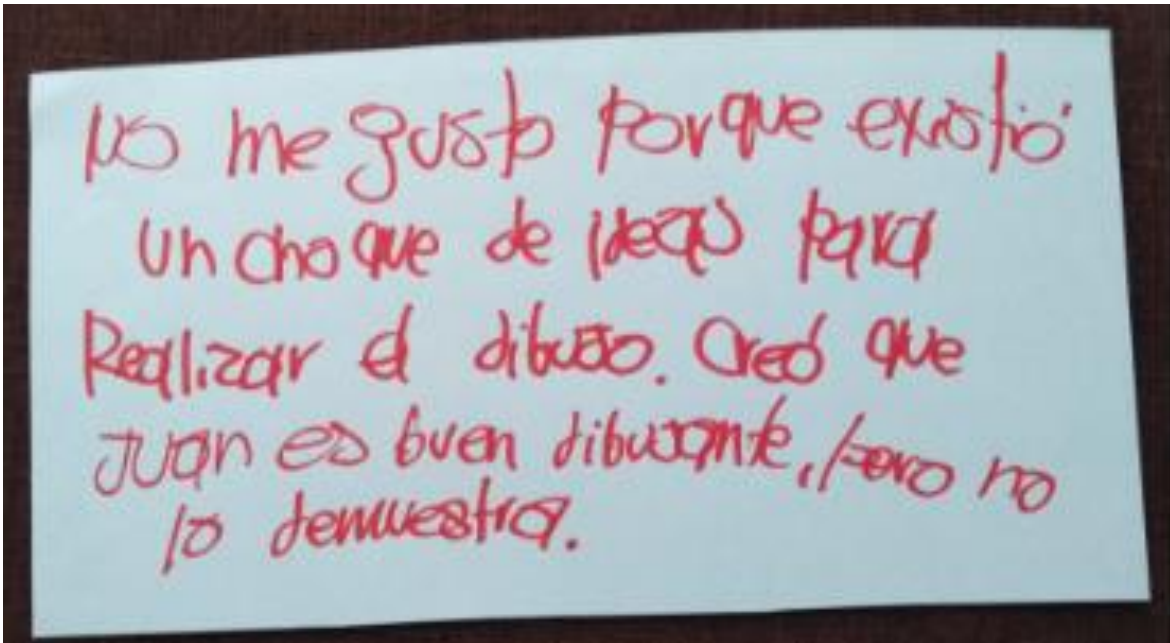 No me gusto porque existió
un choque de ideas para
Realizar el dibujo. Creó que
Juan es buen dibujante, pero no
lo demuestra.